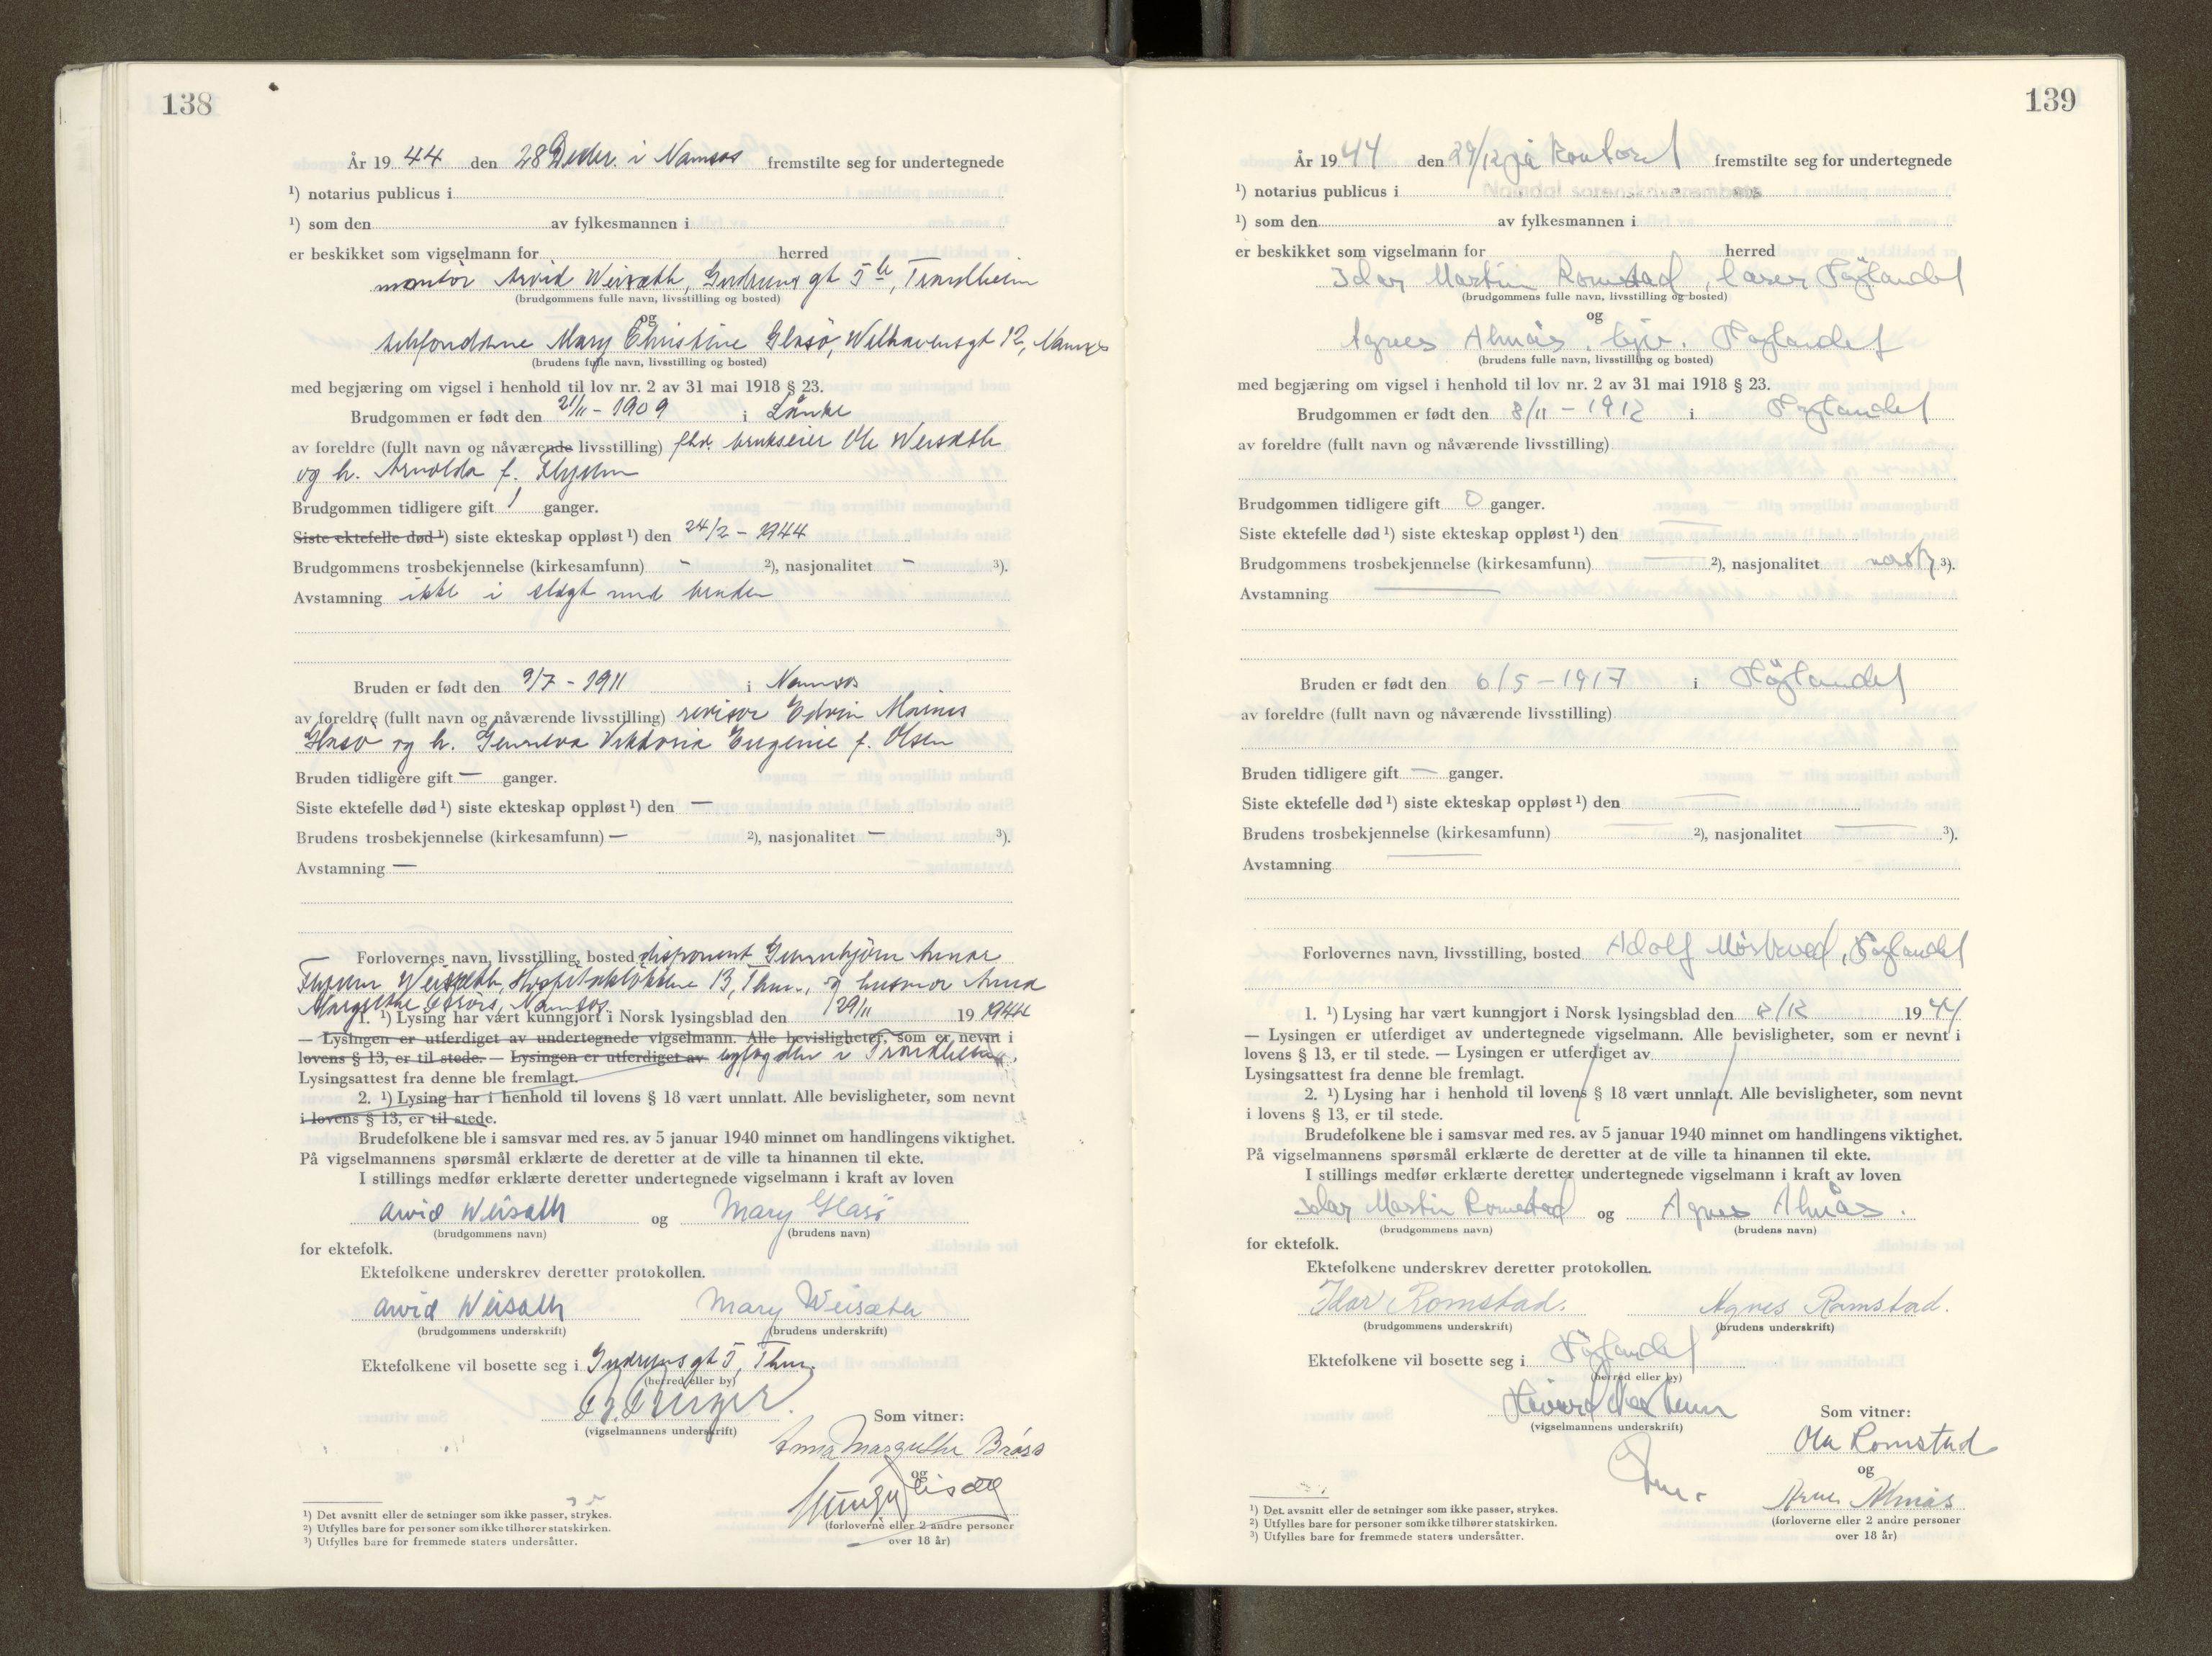 138
År 19 44 den 28 Decbr. i Namsos fremstilte seg for undertegnede
¹) notarius publicus i
¹) som den av fylkesmannen i
er beskikket som vigselmann for herred
montör Arvid Weisæth, Gudruns gt 5 b, Trondheim
(brudgommens fulle navn, livsstilling og bosted)
og
Mary Christine Glasö, Welhavensgt 12, Namsos
(brudens fulle navn, livsstilling og bosted)
med begjæring om vigsel i henhold til lov nr. 2 av 31 mai 1918 § 23.
Brudgommen er født den 21/11 - 1909 i Lånke
av foreldre (fullt navn og nåværende livsstilling) fhv. brukseier Ole Weisæth
og h. Arnolda f.
Brudgommen tidligere gift 1 ganger.
Siste ektefelle død ¹) siste ekteskap oppløst ¹) den 24/2 - 1944
Brudgommens trosbekjennelse (kirkesamfunn) - ²), nasjonalitet - ³).
Avstamning ikke i slegt med bruden
Bruden er født den 9/7 - 1911 i Namsos
av foreldre (fullt navn og nåværende livsstilling) revisor Edvin Marius
Glasö og h. Viktoria Eugenie f. Olsen
Bruden tidligere gift — ganger.
Siste ektefelle død ¹) siste ekteskap oppløst ¹) den —
Brudens trosbekjennelse (kirkesamfunn) — ²), nasjonalitet — ³).
Avstamning —
Forlovernes navn, livsstilling, bosted disponent Gunnbjörn Arnar
Weisæth, 13, Thm., og husmor Anna
Margrethe Namsos.
1. ¹) Lysing har vært kunngjort i Norsk lysingsblad den 29/11 19 1944
— Lysingen er utferdiget av undertegnede vigselmann. Alle bevisligheter, som er nevnt i
lovens § 13, er til stede. — Lysingen er utferdiget av byfogden i Trondheim.
Lysingsattest fra denne ble fremlagt.
2. ¹) Lysing har i henhold til lovens § 18 vært unnlatt. Alle bevisligheter, som nevnt
i lovens § 13, er til stede.
Brudefolkene ble i samsvar med res. av 5 januar 1940 minnet om handlingens viktighet.
På vigselmannens spørsmål erklærte de deretter at de ville ta hinannen til ekte.
I stillings medfør erklærte deretter undertegnede vigselmann i kraft av loven
Arvid Weisæth og Mary Glasö
(brudgommens navn) (brudens navn)
for ektefolk.
Ektefolkene underskrev deretter protokollen.
Arvid Weisæth Mary Weisæth
(brudgommens underskrift) (brudens underskrift)
Ektefolkene vil bosette seg i Gudrunsgt 5, Thm.
(herred eller by)
(vigselmannens underskrift)
Som vitner:
Anna Margrethe
og
(forloverne eller 2 andre personer
over 18 år)
¹) Det avsnitt eller de setninger som ikke passer, strykes.
²) Utfylles bare for personer som ikke tilhører statskirken.
³) Utfylles bare for fremmede staters undersåtter.
139
År 19 44 den 29/12 på kontoret fremstilte seg for undertegnede
¹) notarius publicus i Namdal sorenskriverembete
¹) som den av fylkesmannen i
er beskikket som vigselmann for herred
Idar Martin Romstad, Höylandet
(brudgommens fulle navn, livsstilling og bosted)
og
Agnes Almås, Höylandet
(brudens fulle navn, livsstilling og bosted)
med begjæring om vigsel i henhold til lov nr. 2 av 31 mai 1918 § 23.
Brudgommen er født den 8/11 - 1912 i Höylandet
av foreldre (fullt navn og nåværende livsstilling)
Brudgommen tidligere gift 0 ganger.
Siste ektefelle død ¹) siste ekteskap oppløst ¹) den
Brudgommens trosbekjennelse (kirkesamfunn) — ²), nasjonalitet norsk ³).
Avstamning —
Bruden er født den 6/5 - 1917 i Höylandet
av foreldre (fullt navn og nåværende livsstilling)
Bruden tidligere gift — ganger.
Siste ektefelle død ¹) siste ekteskap oppløst ¹) den —
Brudens trosbekjennelse (kirkesamfunn) — ²), nasjonalitet — ³).
Avstamning —
Forlovernes navn, livsstilling, bosted Adolf Höylandet
1. ¹) Lysing har vært kunngjort i Norsk lysingsblad den /12 19 44
— Lysingen er utferdiget av undertegnede vigselmann. Alle bevisligheter, som er nevnt i
lovens § 13, er til stede. — Lysingen er utferdiget av
Lysingsattest fra denne ble fremlagt.
2. ¹) Lysing har i henhold til lovens § 18 vært unnlatt. Alle bevisligheter, som nevnt
i lovens § 13, er til stede.
Brudefolkene ble i samsvar med res. av 5 januar 1940 minnet om handlingens viktighet.
På vigselmannens spørsmål erklærte de deretter at de ville ta hinannen til ekte.
I stillings medfør erklærte deretter undertegnede vigselmann i kraft av loven
Idar Martin Romstad og Agnes Almås.
(brudgommens navn) (brudens navn)
for ektefolk.
Ektefolkene underskrev deretter protokollen.
Idar Romstad. Agnes Romstad.
(brudgommens underskrift) (brudens underskrift)
Ektefolkene vil bosette seg i Höylandet
(herred eller by)
(vigselmannens underskrift)
Som vitner:
Ola Romstad
og
Arne Almås
(forloverne eller 2 andre personer
over 18 år)
¹) Det avsnitt eller de setninger som ikke passer, strykes.
²) Utfylles bare for personer som ikke tilhører statskirken.
³) Utfylles bare for fremmede staters undersåtter.